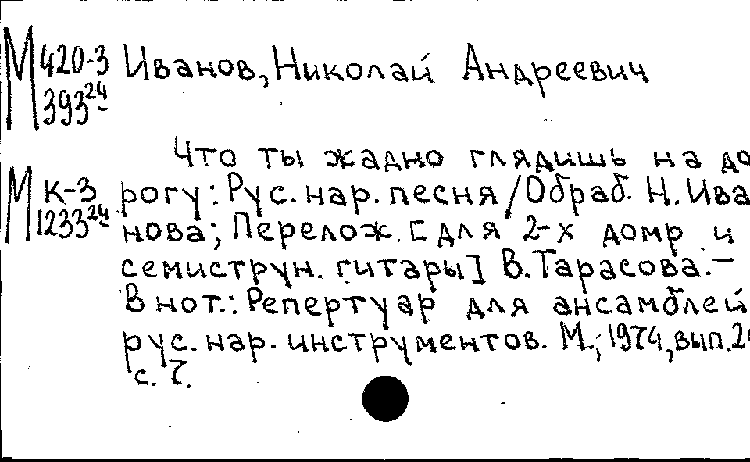 М 420-3 Иванов, Николай Андреевич
393 24
Что ты жадно глядишь на до
М К-3 рогу: Рус. нар. песня / Обраб. Н. Ива
1233 24 нова; Перелож. [для 2-х домр и
семиструн. гитары] В. Тарасова. –
В нот.: Репертуар для ансамблей
рус. нар. инструментов. М., 1974, вып.
с. 7.